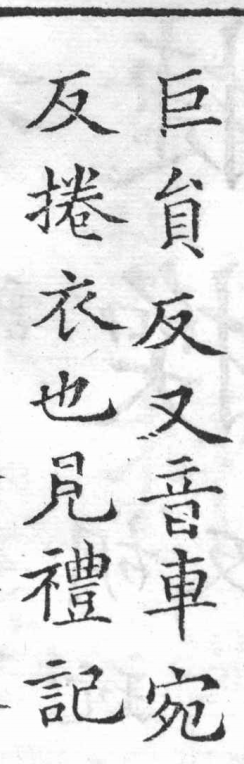 巨負反又音車宛
反捲衣也見禮記